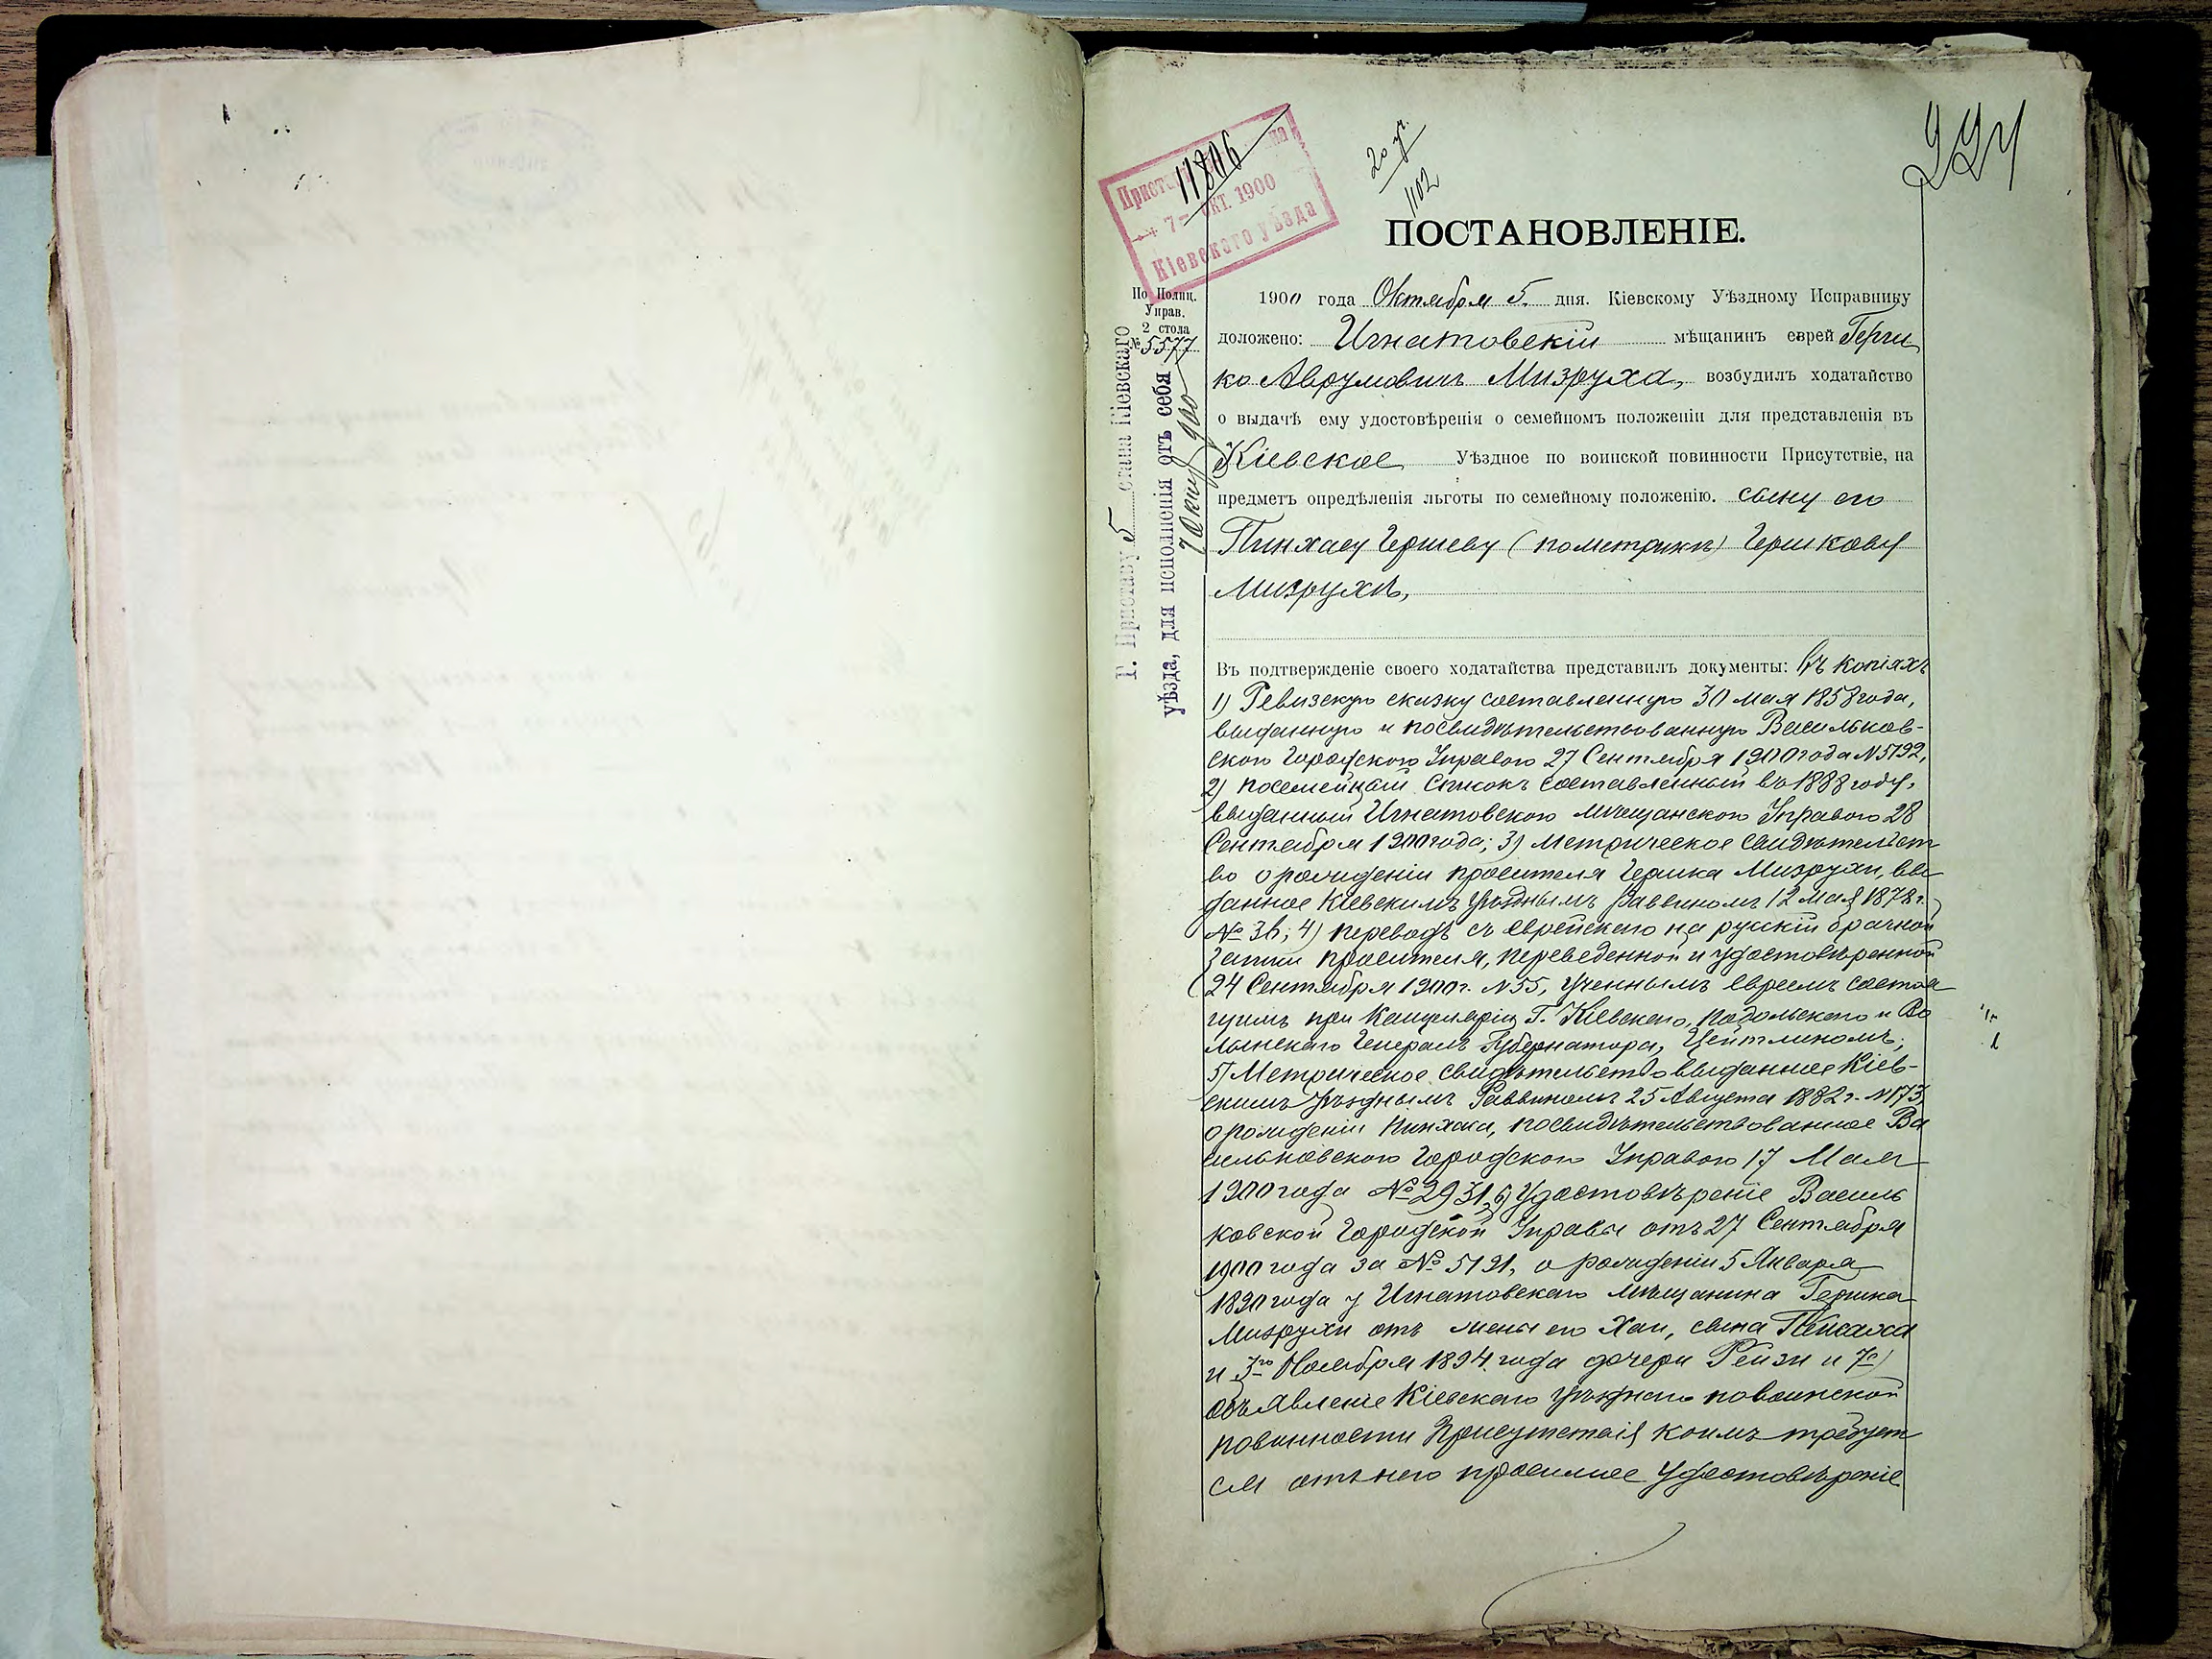 224
11806
Приста
7 - ОКТ. 1900
Кіевскаго уѣзда
20
1102
ПОСТАНОВЛЕНІЕ.
По Полиц.
Управ.
2 стола
№ 5577
Г. Приставу 5 стана Кіевскаго
уѣзда, для исполненія отъ себя
7 Окт 900
1900 года Октября 5. дня. Кіевскому Уѣздному Исправнику
доложено: Игнатовскій мѣщанинъ еврей Герш
ко Аврумовичъ Мизруха, возбудилъ ходатайство
о выдачѣ ему удостовѣренія о семейномъ положеніи для представленія въ
Кіевское Уѣздное по воинской повинности Присутствіе, на
предметъ опредѣленія льготы по семейному положенію. сыну его
Пинхасу Гершеву (по метрикѣ) Гершкову
Мизрухѣ,
Въ подтвержденіе своего ходатайства представилъ документы: въ копіяхъ
1) Ревизскую сказку составленную 30 мая 1858 года,
выданную и посвидѣтельствованную Васильков-
скою Городскою Управою 27 Сентября 1900 года № 5192,
2) посемейный списокъ составленный въ 1888 году,
выданный Игнатовскою мѣщанскою Управою 28
Сентября 1900 года; 3) Метрическое свидѣтельст
во о рожденіи просителя Гершка Мизрухи, вы
данное Кіевскимъ Уѣзднымъ Раввиномъ 12 мая 1878 г.
№ 36; 4) переводъ съ еврейскаго на русскій брачной
записи просителя, переведенной и удостовѣренной
24 Сентября 1900 г. № 55, Ученымъ Евреемъ состоя
щимъ при Канцеляріи Г. Кіевскаго, Подольскаго и Во
лынскаго Генералъ Губернатора, Цейтлиномъ;
5) Метрическое свидѣтельство выданное Кіев-
скимъ Уѣзднымъ Раввиномъ 25 Августа 1882 г. № 173
о рожденіи Пинхаса, посвидѣтельствованное Ва
сильковскою Городскою Управою 17 Мая
1900 года № 2931, 6) Удостовѣреніе Василь
ковской Городской Управы отъ 27 Сентября
1900 года за № 5191, о рожденіи 5 Января
1890 года у Игнатовскаго мѣщанина Гершка
Мизрухи отъ жены его Хаи, сына Пейсаха
и 3го Ноября 1894 года дочери Рейзи и 7е)
объявленіе Кіевскаго Уѣзднаго по воинской
повинности Присутствія коимъ требует
ся отъ него просимое удостовѣреніе